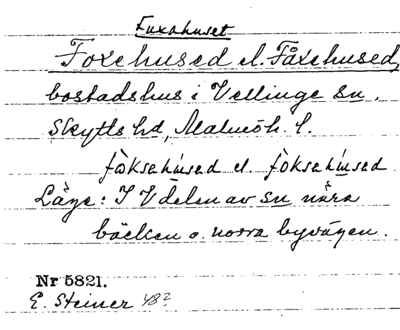 Fuxahuset
Foxehused el. Fåxehused,
bostadshus i Vellinge sn,
Skytts hd, Malmöh. l.
fòksahúsed el. fò̢ksahúsed
Läge: I V delen av sn nära
bäcken o. norra byvägen.
Nr 5821.
E. Steiner 48?